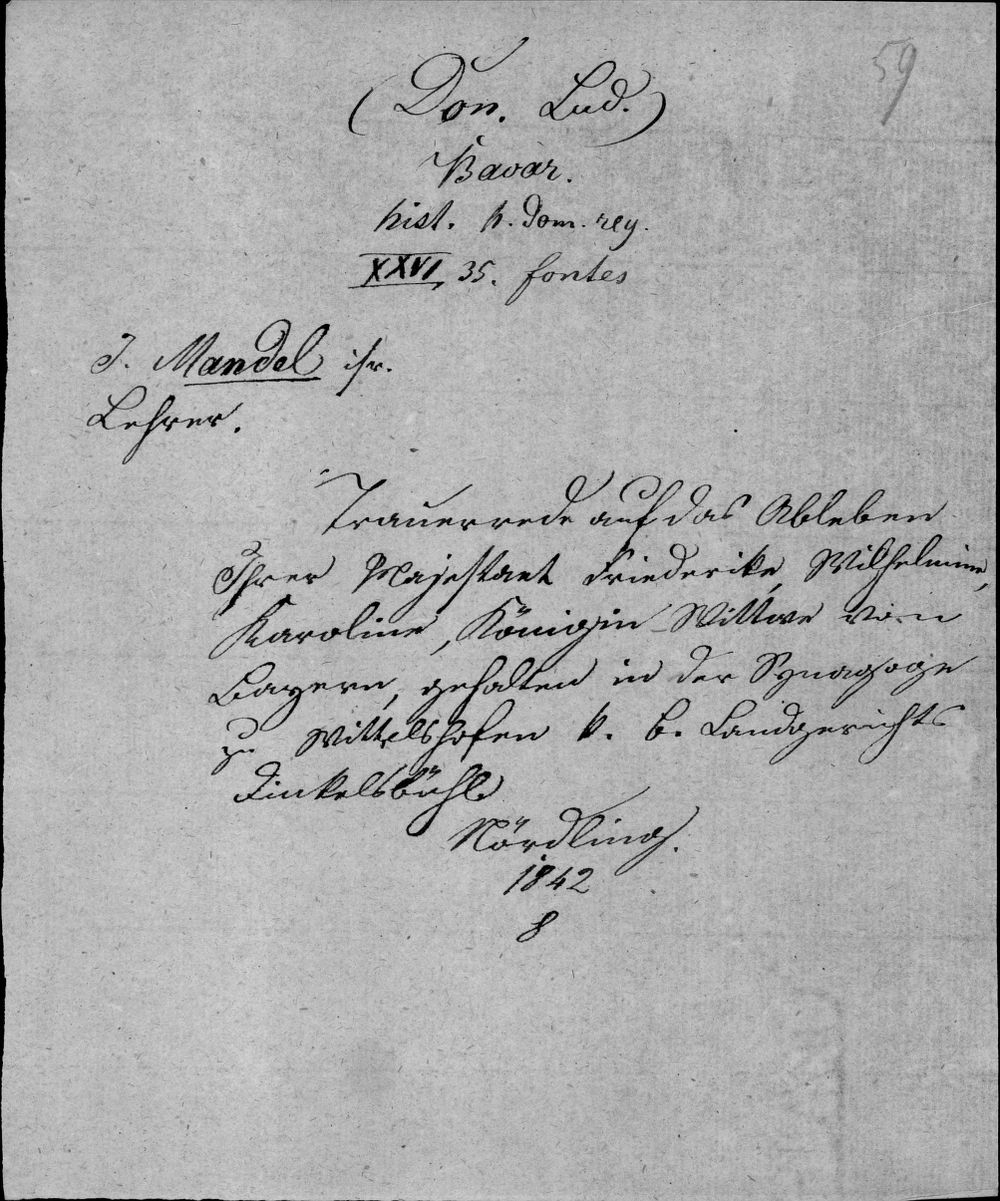 59
(Don. Lud.)
Bavar.
hist. p. dom. reg.
XXVI, 35. fontes
J. Mandel isr.
Lehrer.
Trauerrede auf das Ableben
Ihrer Majestaet Friederike, Wilhelmine,
Karoline, Königin-Wittwe von
Bayern, gehalten in der Synagoge
zu Wittelshofen k. b. Landgerichts
Dinkelsbühl
Nördling.
1842
8